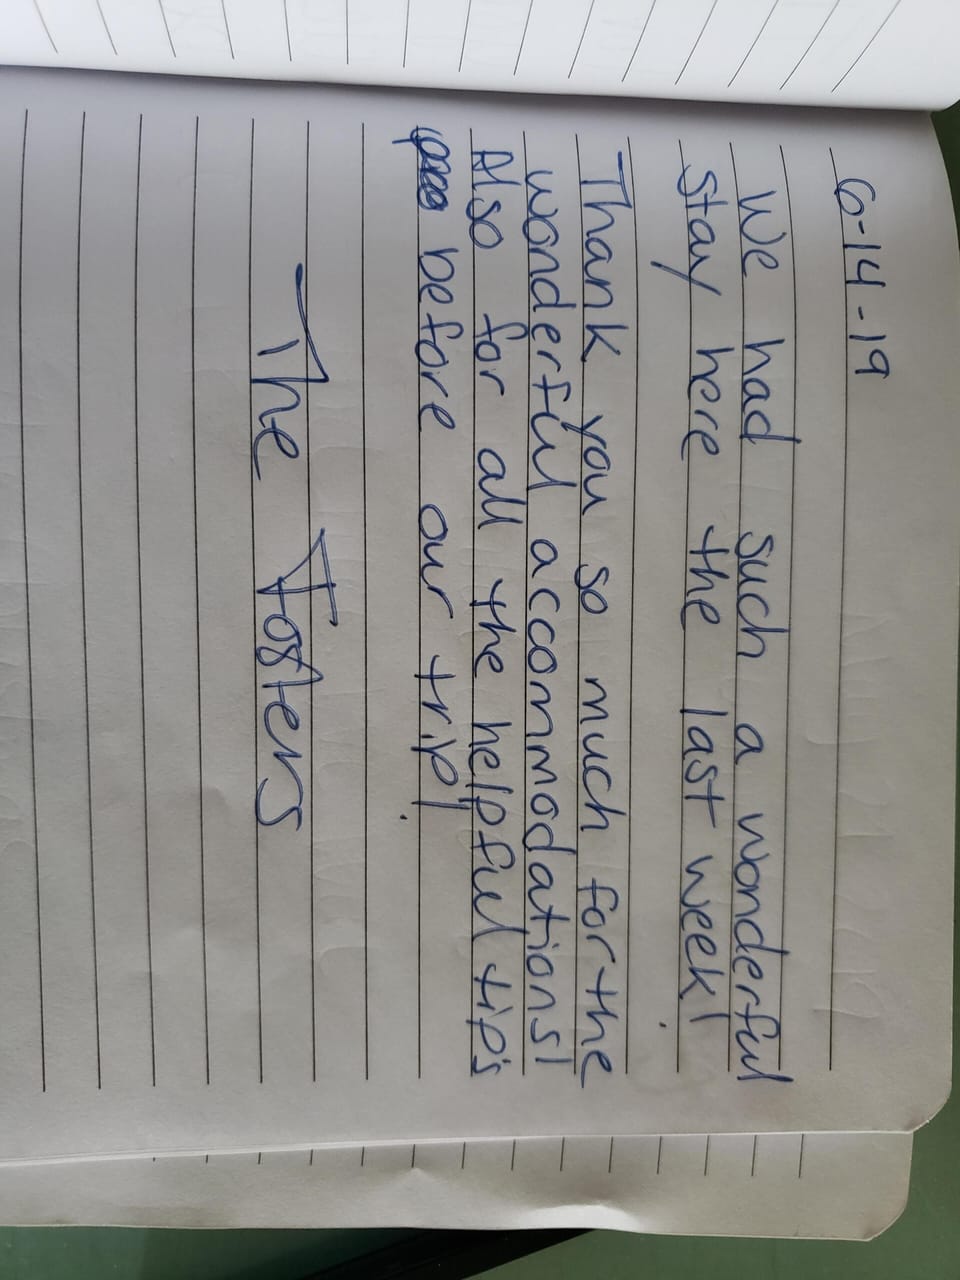 6-14-19
We had such a wonderful
stay here the last week!
Thank you so much for the
wonderful accommodations!
Also for all the helpful tips
before our trip!
The Fosters